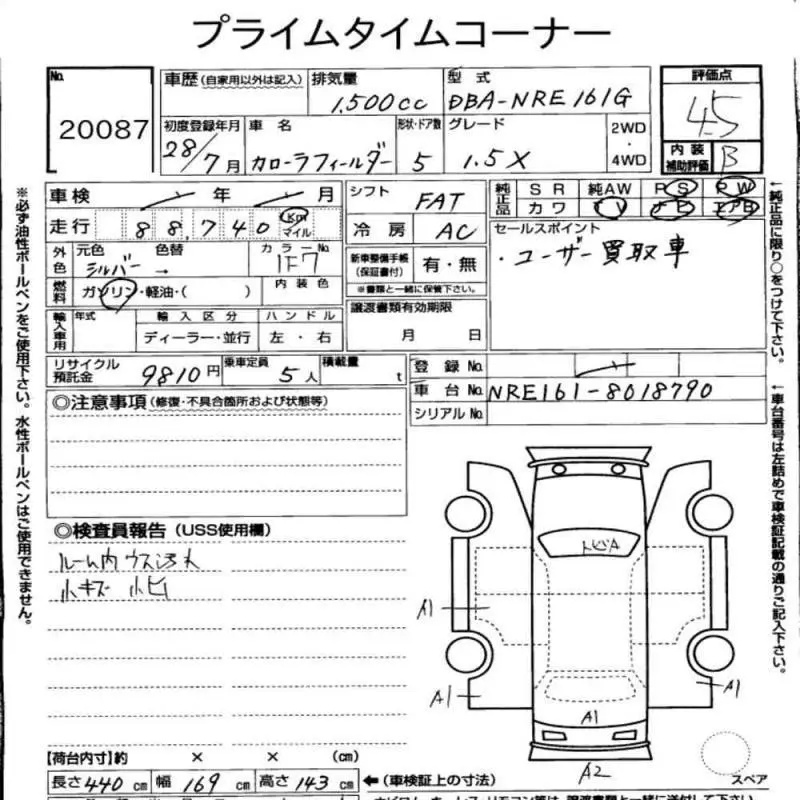 プライムタイムコーナー
No. 20087
車歴 (自家用以外は記入)
排気量 1,500cc
型式 DBA-NRE161G
評価点 4.5
初度登録年月 28/7月
車名 カローラフィールダー
形状・ドア数 5
グレード 1.5X
2WD・4WD
内装補助評価 B
※必ず油性ボールペンをご使用下さい。水性ボールペンはご使用できません。
車検 年 月
シフト FAT
純正品 SR 純AW PS PW
カワ TV ナビ エアB
←純正品に限り○をつけて下さい。
走行 88,740 Km マイル
冷房 AC
セールスポイント
・ユーザー買取車
外色 元色 シルバー 色替 →
カラーNo. 1F7
内装色
新車整備手帳(保証書付) 有・無
※書類と一緒に保管下さい。
燃料 ガソリン・軽油・( )
譲渡書類有効期限
月 日
輸入車用 年式 輸入区分 ハンドル
ディーラー・並行 左・右
リサイクル預託金 9810円
乗車定員 5人
積載量 t
登録No.
車台No. NRE161-8018790
シリアルNo.
←車台番号は左詰めで車検証記載の通りご記入下さい。
◎注意事項(修復・不具合箇所および状態等)
◎検査員報告(USS使用欄)
ルーム内ウス汚れ
小キズ 小ヒ
トビA
A1
A1
A1
A1
A2
スペア
【荷台内寸】約 × × (cm)
長さ 440 cm 幅 169 cm 高さ 143 cm ←(車検証上の寸法)